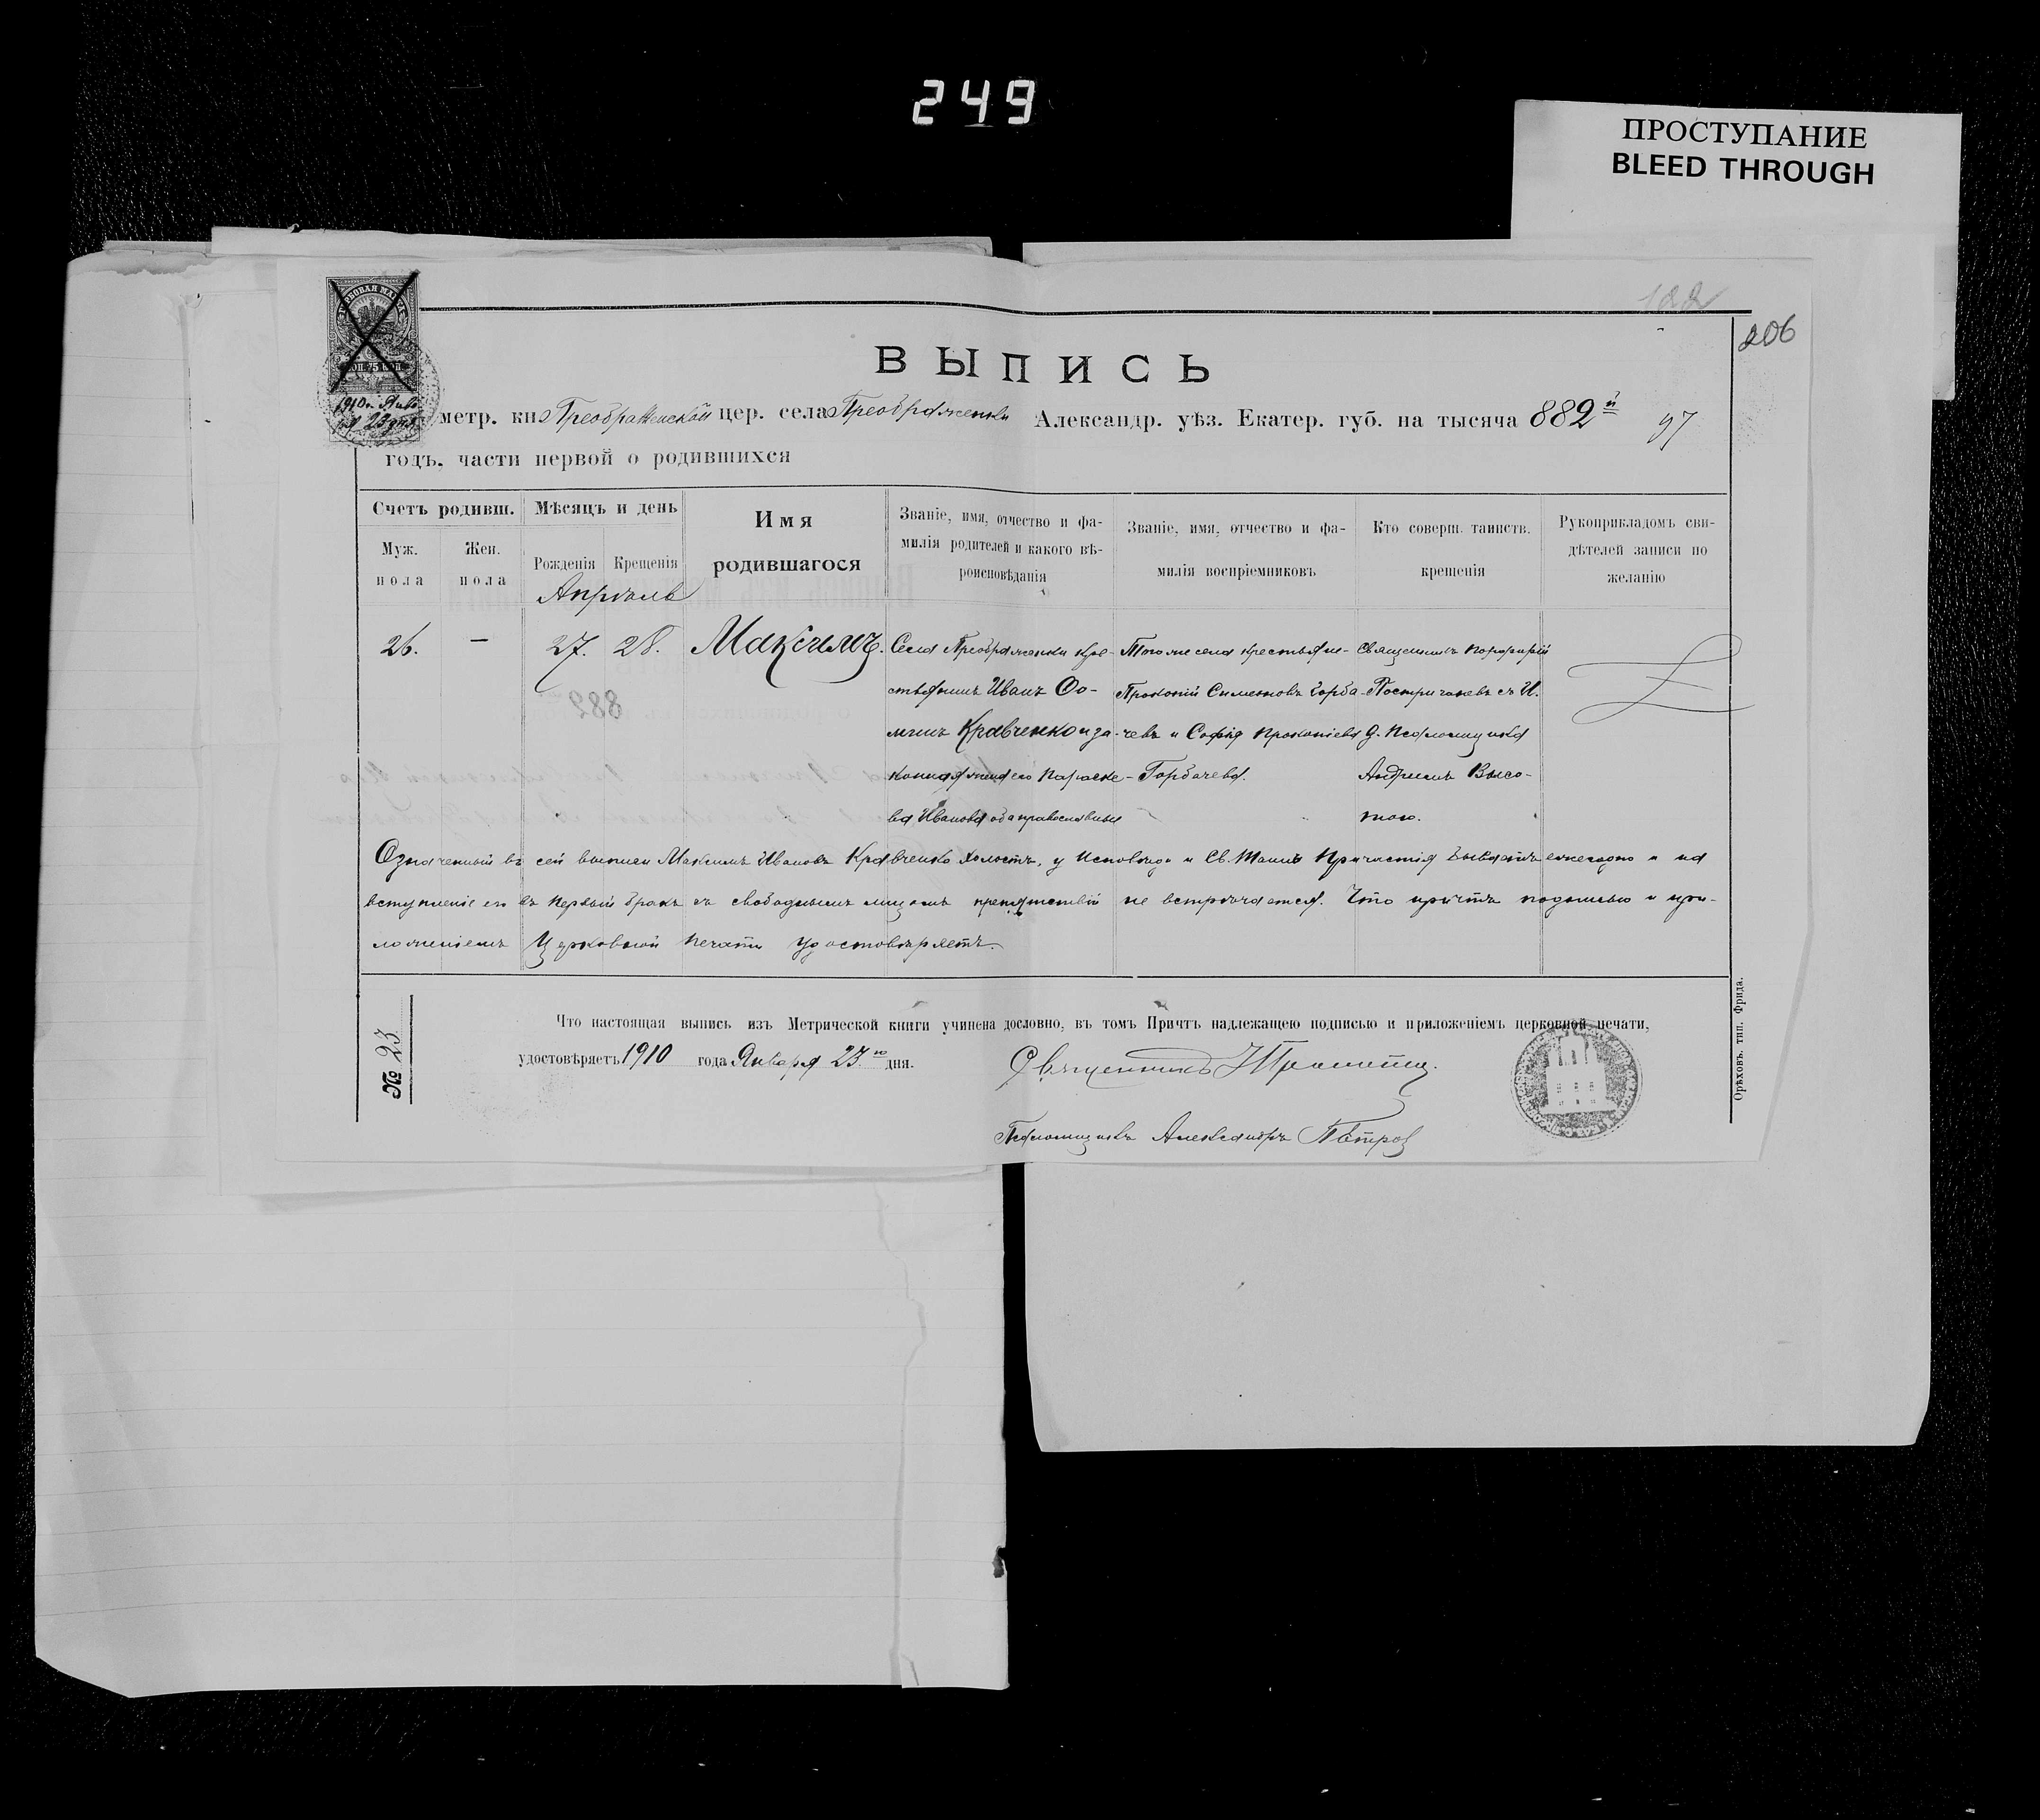 249
ПРОСТУПАНИЕ
BLEED THROUGH
122
206
ВЫПИСЬ
75 КОП.
1910 г. Янва-
ря 23 дня
метр. кн. Преображенской цер. села Преображенки Александр. уѣз. Екатер. губ. на тысяча 882й
97
годъ, части первой о родившихся
Счетъ родивш.
Муж. пола
Жен. пола
Мѣсяцъ и день
Рожденія
Крещенія
Имя
родившагося
Званіе, имя, отчество и фа-
милія родителей и какого вѣ-
роисповѣданія
Званіе, имя, отчество и фа-
милія воспріемниковъ
Кто соверш. таинств.
крещенія
Рукоприкладомъ сви-
дѣтелей записи по
желанію
Апрѣль
26.
—
27.
28.
Максимъ.
Села Преображенки кре-
стьянинъ Иванъ Ѳо-
минъ Кравченко и за-
конная жена его Параске-
ва Иванова оба православные
Того же села крестьяне
Прокопій Симеоновъ Горба-
чевъ и Софія Прокопіева
Горбачева.
Священникъ Порфирій
Постригачевъ съ И.
д. Псаломщика
Андреемъ Высо-
тою.
Означенный въ сей выписи Максимъ Ивановъ Кравченко холостъ, у Исповѣди и Св. Таинъ Причастія бываетъ ежегодно и на
вступленіе его въ первый бракъ съ свободнымъ лицомъ препятствій не встрѣчается. Что причтъ подписью и при-
ложеніемъ Церковной печати удостовѣряетъ.
№ 23
Что настоящая выпись изъ Метрической книги учинена дословно, въ томъ Причтъ надлежащею подписью и приложеніемъ церковной печати,
удостовѣряетъ 1910 года Января 23го дня.
Священникъ
Псаломщикъ Александръ Петров
Орѣховъ. тип. Фрида.